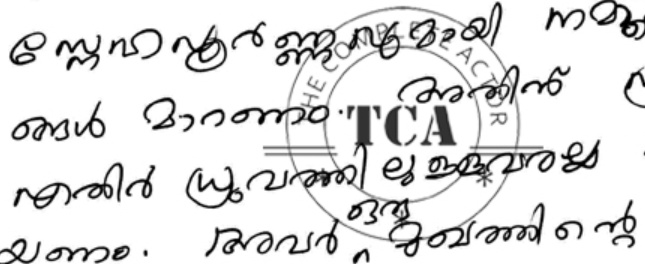 സ്നേഹപൂർണ്ണവുമായി നമ്മു
ങ്ങൾ മാറണം. അതിന്
എതിർ ധ്രുവത്തിലുള്ളവരല്ല
യണം. അവർ ഒരു മുഖത്തിന്റെ
THE COMPLETE ACTOR
TCA